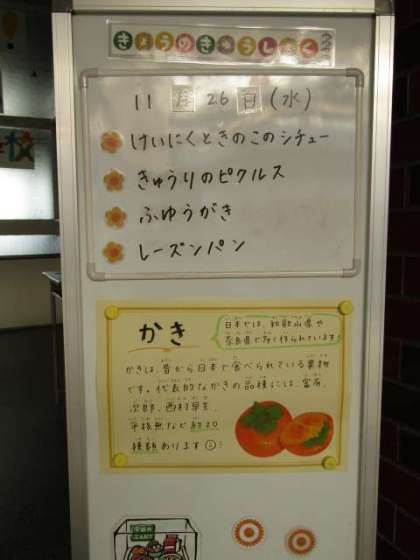 きょうのきゅうしょく
11月26日(水)
けいにくときのこのシチュー
きゅうりのピクルス
ふゆうがき
レーズンパン
かき
日本では、和歌山県や
奈良県で多く作られています
かきは、昔から日本で食べられている果物
です。代表的なかきの品種には、富有、
次郎、西村早生、
平核無など約20
種類あります